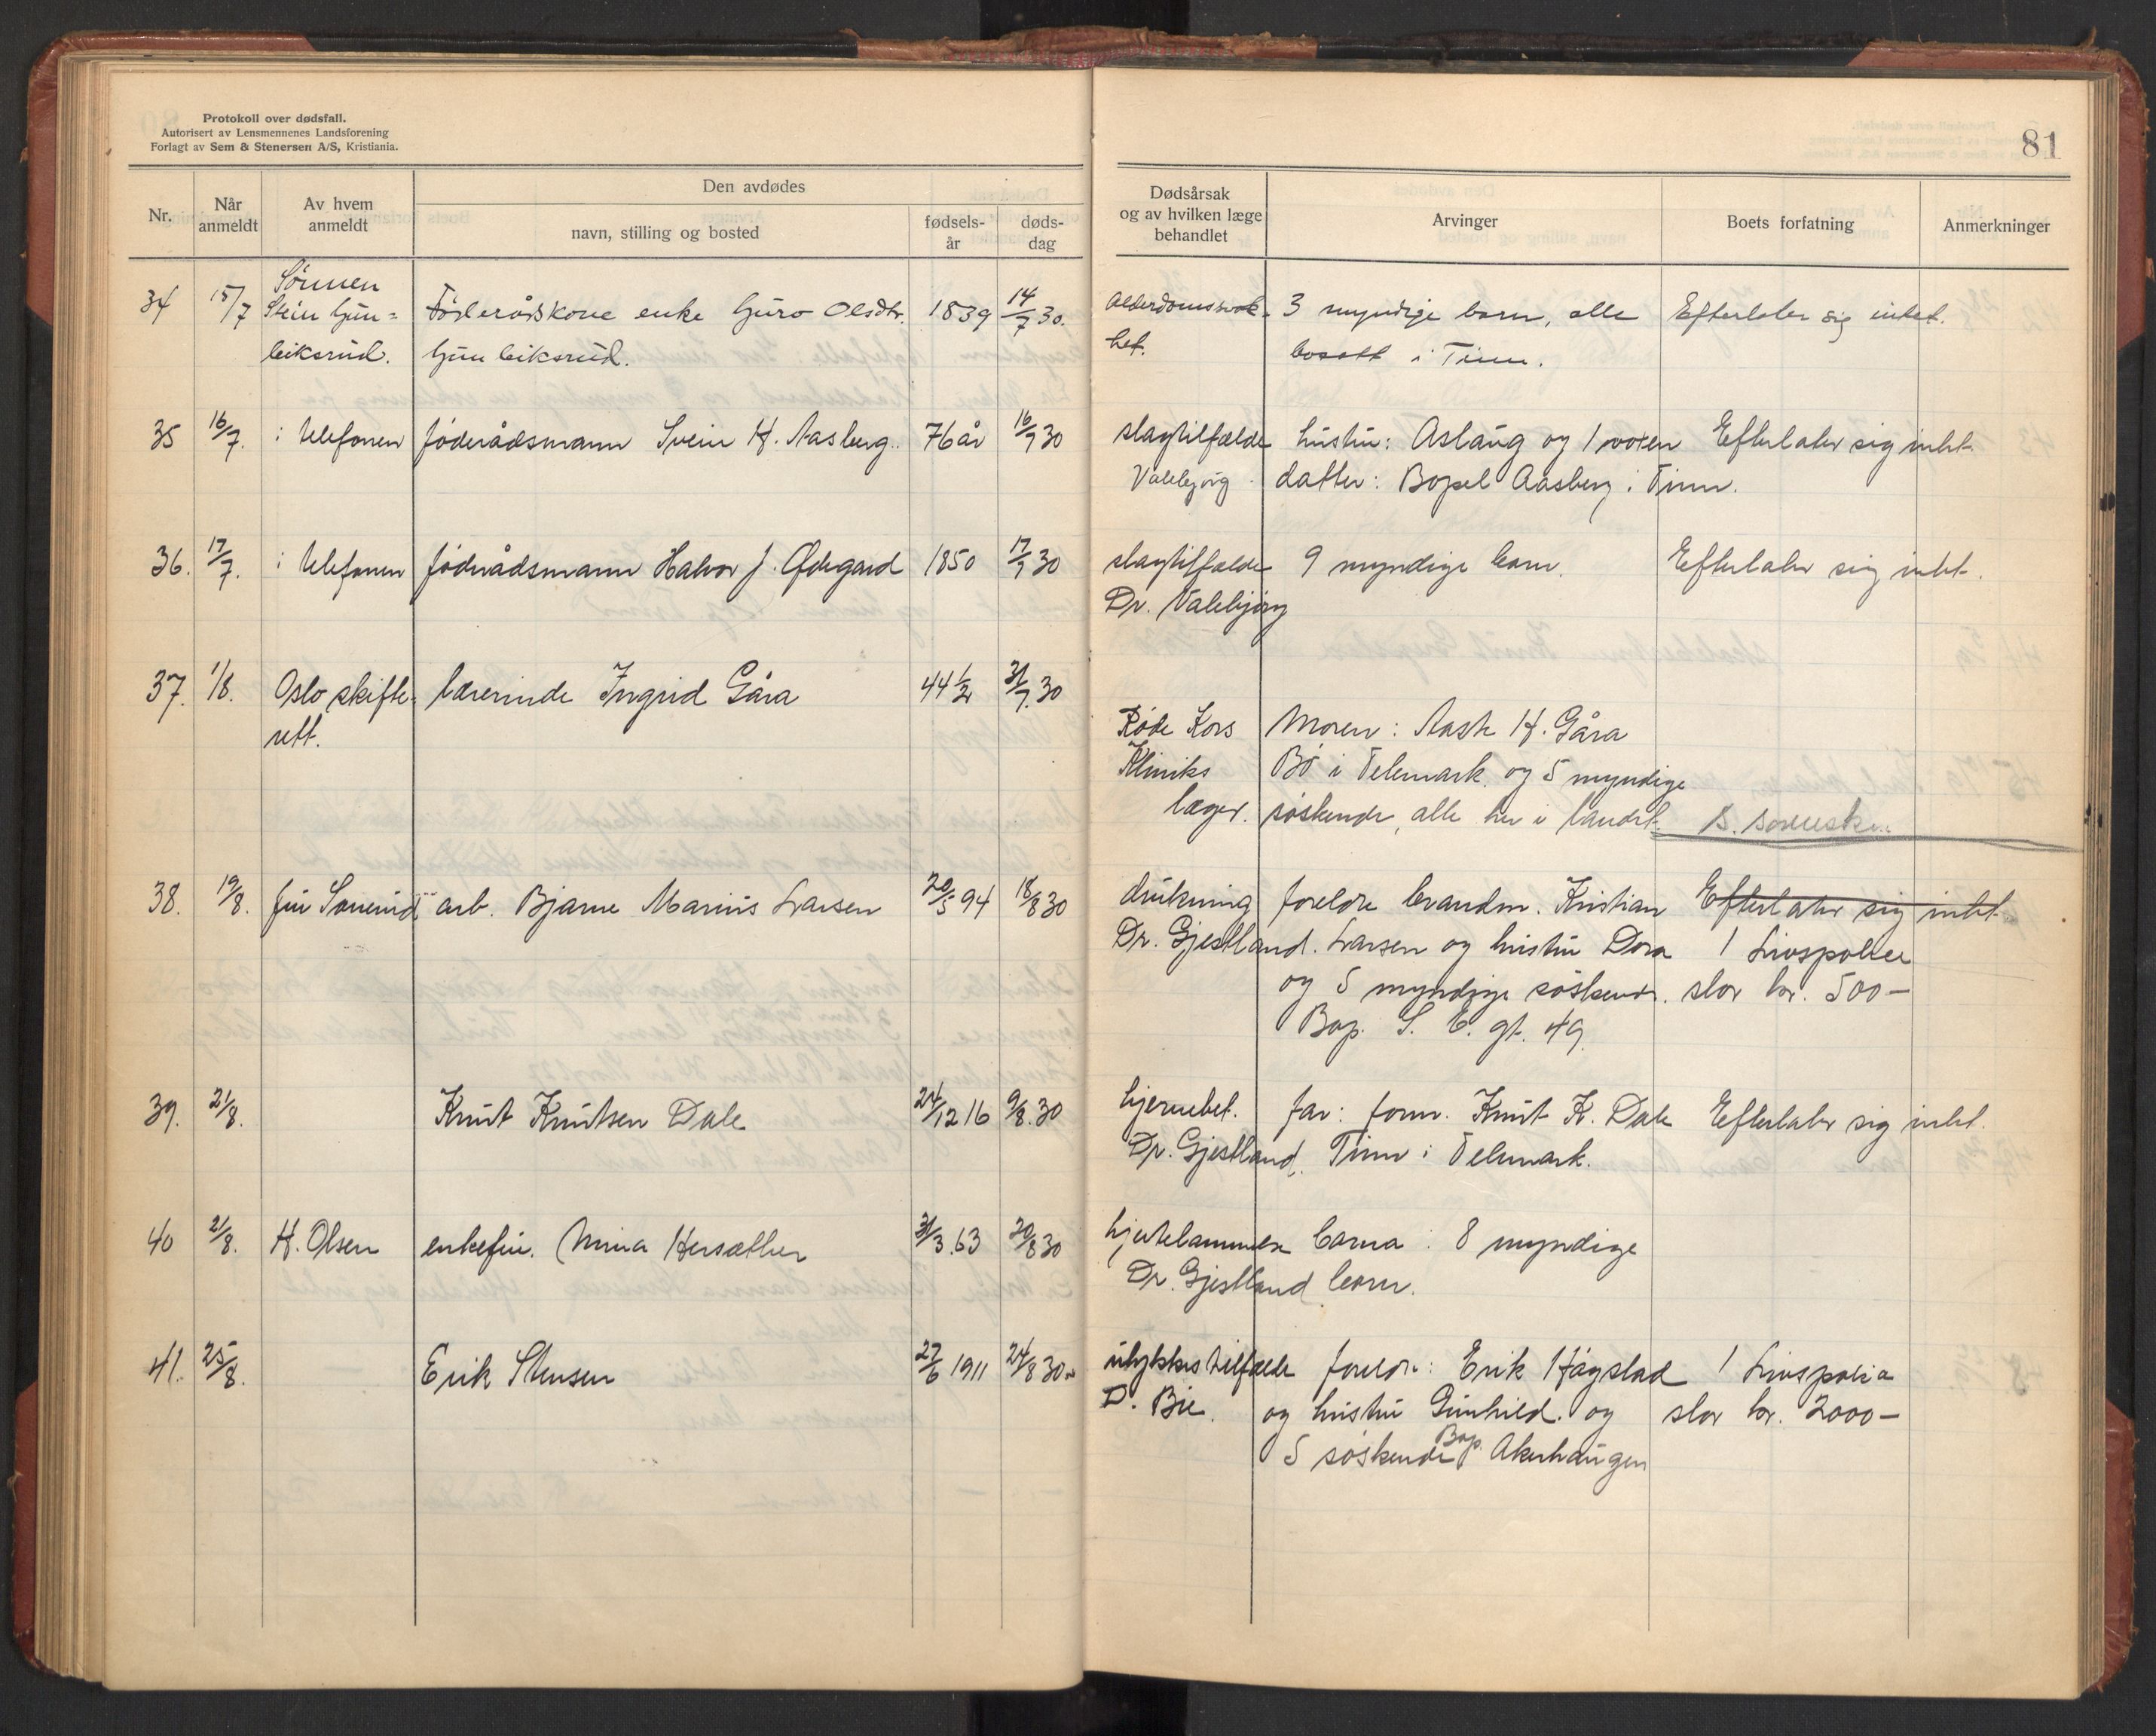 Protokoll over dødsfall.
Autorisert av Lensmennenes Landsforening
Forlagt av Sem & Stenersen A/S, Kristiania.
81
Nr.
Når anmeldt
Av hvem anmeldt
Den avdødes
navn, stilling og bosted
fødsels-år
døds-dag
Dødsårsak og av hvilken læge behandlet
Arvinger
Boets forfatning
Anmerkninger
34 15/7 Sønnen Føderådskone enke Guro Olsdtr. 1839 14/7 30. Alderdomssvak- 3 myndige barn, alle Efterlater sig intet.
Stein Gun=
leiksrud. Gunleiksrud. het. bosatt i Tinn.
35 16/7. i telefonen føderådsmann Svein H. Aasberg. 76 år 16/7 30 slagtilfælde hustru: Aslaug og 1 voxen Efterlater sig intet.
Valebjørg datter: Bopel Aasberg i Tinn.
36. 17/7. i telefonen føderådsmann Halvor J. Ødegard 1850 17/7 30 slagtilfælde 9 myndige barn. Efterlater sig intet.
Dr. Valebjørg
37. 1/8. Oslo skifte- lærerinde Ingrid Gåra 44 1/2 31/7. 30
rett.
Røde Kors Moren: Aase H. Gåra
Kliniks Bø i Telemark og 5 myndige
læger. søskende, alle her i landet.
38. 19/8. fru arb. Bjarne Marius Larsen 20/5 94 18/8 30 drukning foreldre brandm. Kristian Efterlater sig intet.
Dr. Gjestland. Larsen og hustru Dora 1 Livspolise
og 5 myndige søskende. stor kr. 500-
Bop. S. E. gt. 49
39. 21/8. Knut Knutsen Dale 24/12 16 9/8. 30 hjernebet. far: form. Knut K. Dale Efterlater sig intet.
Dr. Gjestland. Tinn i Telemark.
40 21/8. H. Olsen enkefru. Mina Hersætter 31/3. 63 20/8 30 hjertelammelse barna: 8 myndige
Dr. Gjestland barn.
41. 25/8. Erik Stensen 27/6 1911 24/8 30. ulykkestilfælde foreldre: Erik Hågstad 1 Livspolise
D. Bie. og hustru Gunhild. og stor kr. 2000-
5 søskende Bop. Akerhaugen